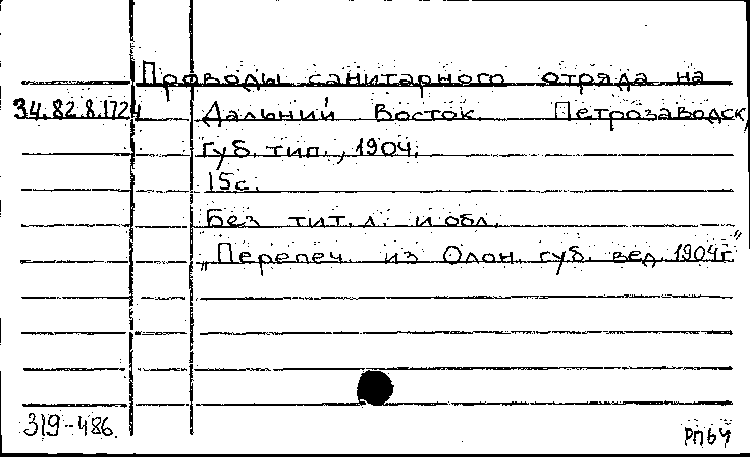 Проводы санитарного отряда на
34.82.8.1724 Дальний Восток. Петрозаводск,
губ. тип., 1904.
15с.
Без тит. л. и обл.
„Перепеч. из Олон. губ. вед. 1904г."
319-486.
РП64